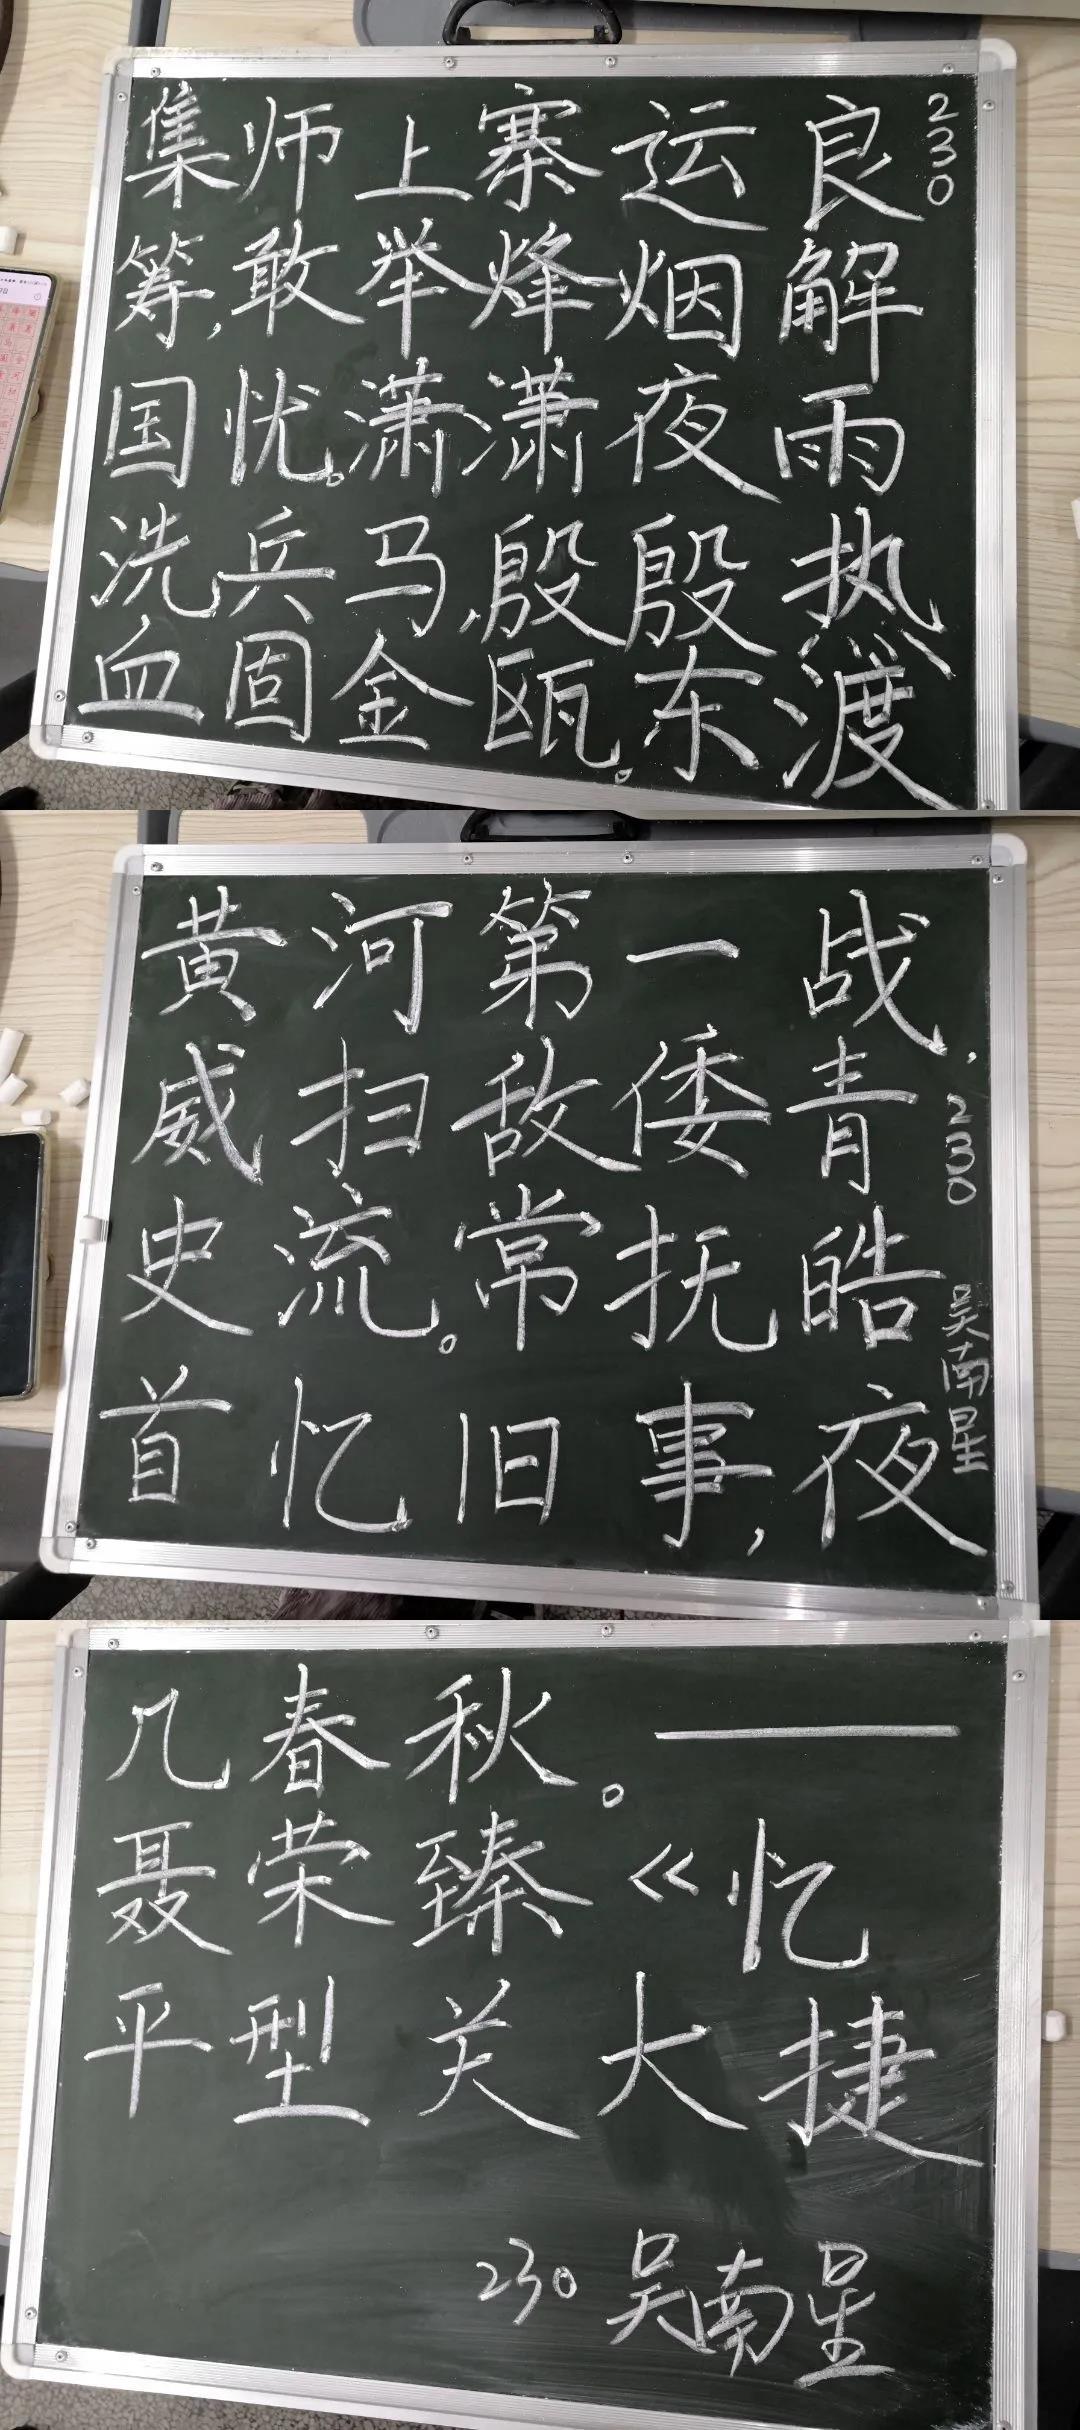 集师上寨运良
230
筹,敢举烽烟解
国忧。潇潇夜雨
洗兵马,殷殷热
血固金瓯。东渡
黄河第一战,
威扫敌倭青
230
史流。常抚皓
吴南星
首忆旧事,夜
几春秋。——
聂荣臻《忆
平型关大捷
230 吴南星